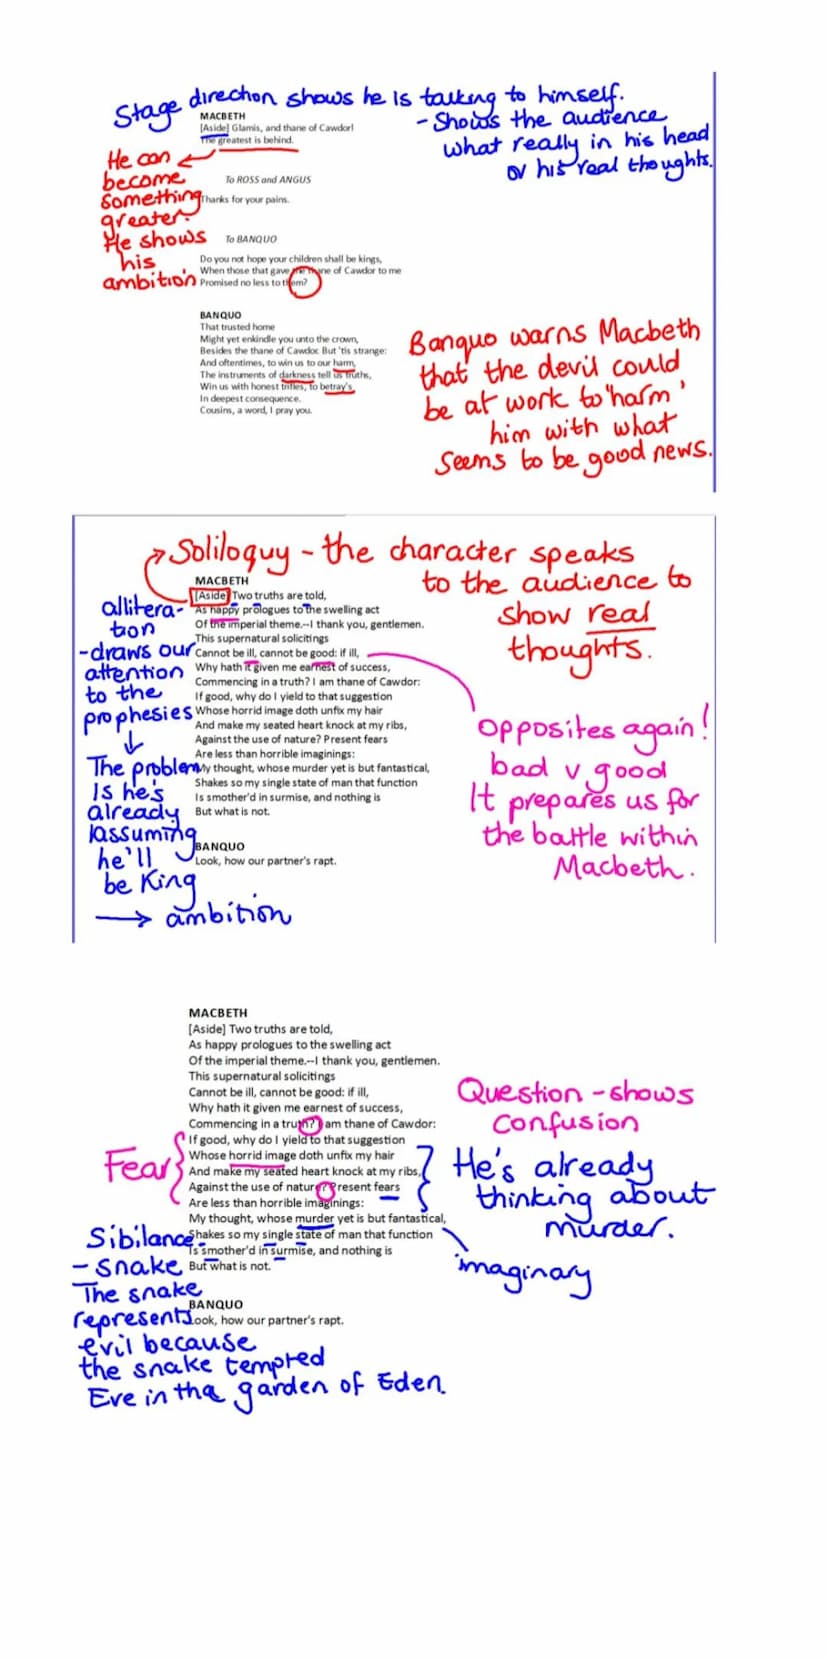 Stage direction shows he is talking to himself.
- Shows the audience
what really in his head
or his real thoughts.
MACBETH
[Aside] Glamis, and thane of Cawdor!
The greatest is behind.
He can
become
something
greater.
He shows
his
ambition
To ROSS and ANGUS
Thanks for your pains.
To BANQUO
Do you not hope your children shall be kings,
When those that gave the thane of Cawdor to me
Promised no less to them?
BANQUO
That trusted home
Might yet enkindle you unto the crown,
Besides the thane of Cawdor. But 'tis strange:
And oftentimes, to win us to our harm,
The instruments of darkness tell us truths,
Win us with honest trifles, to betray's
In deepest consequence.
Cousins, a word, I pray you.
Banquo warns Macbeth
that the devil could
be at work to 'harm'
him with what
seems to be good news.
Soliloquy - the character speaks
to the audience to
show real
thoughts.
MACBETH
[Aside] Two truths are told,
As happy prologues to the swelling act
Of the imperial theme.--I thank you, gentlemen.
This supernatural solicitings
Cannot be ill, cannot be good: if ill,
Why hath it given me earnest of success,
Commencing in a truth? I am thane of Cawdor:
If good, why do I yield to that suggestion
Whose horrid image doth unfix my hair
And make my seated heart knock at my ribs,
Against the use of nature? Present fears
Are less than horrible imaginings:
My thought, whose murder yet is but fantastical,
Shakes so my single state of man that function
Is smother'd in surmise, and nothing is
But what is not.
BANQUO
Look, how our partner's rapt.
allitera-
tion
-draws our
attention
to the
prophesies
The problem
Is he's
already
assuming
he'll
be King
→ ambition
Opposites again!
bad v good
It prepares us for
the battle within
Macbeth.
MACBETH
[Aside] Two truths are told,
As happy prologues to the swelling act
Of the imperial theme.--I thank you, gentlemen.
This supernatural solicitings
Cannot be ill, cannot be good: if ill,
Why hath it given me earnest of success,
Commencing in a truth? I am thane of Cawdor:
If good, why do I yield to that suggestion
Whose horrid image doth unfix my hair
And make my seated heart knock at my ribs,
Against the use of nature? Present fears
Are less than horrible imaginings:
My thought, whose murder yet is but fantastical,
Shakes so my single state of man that function
Is smother'd in surmise, and nothing is
But what is not.
BANQUO
Look, how our partner's rapt.
Question - shows
confusion
Fear
He's already
thinking about
murder.
imaginary
Sibilance
- snake
The snake
represents
evil because
the snake tempted
Eve in the garden of Eden.